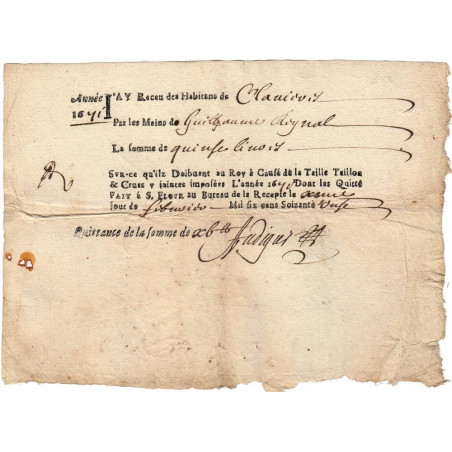 Année I'AY Receu des Habitans de Clauieres
1671
Par les Mains de Guilhaume Reynal
La somme de quinse liures
Sur-ce qu'ilz Doibuent au Roy à Cause dé la Taille Taillon
& Crues y jointes imposées L'année 1671 Dont les Quitte
FAIT à S. FLOUR au Bureau de la Recepte le
Jour de Mil six cens Soixante Unse
Quittance de la somme de xb